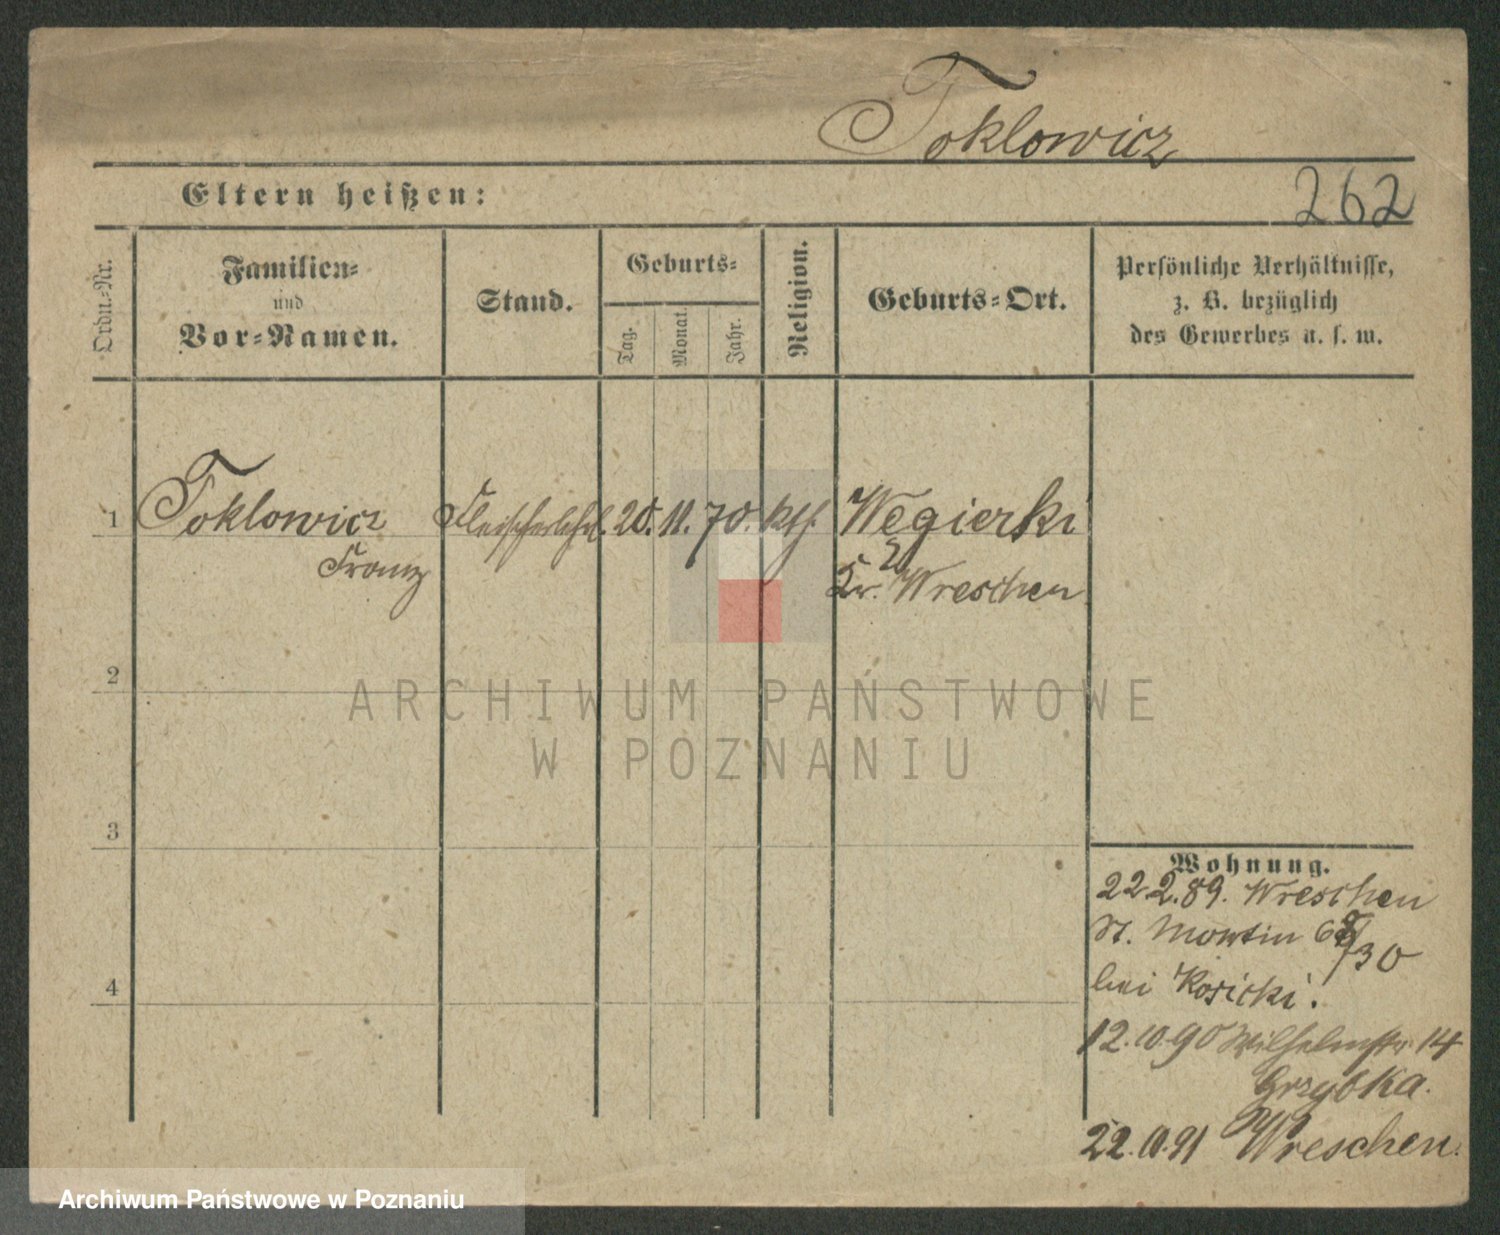 Toklowicz
Eltern heißen:
262
Ordn.-Nr.
Familien-
und
Vor-Namen.
Stand.
Geburts-
Tag.
Monat.
Jahr.
Religion.
Geburts-Ort.
Persönliche Verhältnisse,
z. B. bezüglich
des Gewerbes u. s. w.
1 Toklowicz Fleischerlehrl. 20. 11. 70. kth. Wegierki
Franz Kr. Wreschen
2
ARCHIWUM PAŃSTWOWE
W POZNANIU
3
Wohnung.
22.2.89. Wreschen
St. Martin /30
bei Kosicki.
4
12.10.90 Wilhelmstr. 14
Grzybka.
22.10.91 Wreschen.
Archiwum Państwowe w Poznaniu